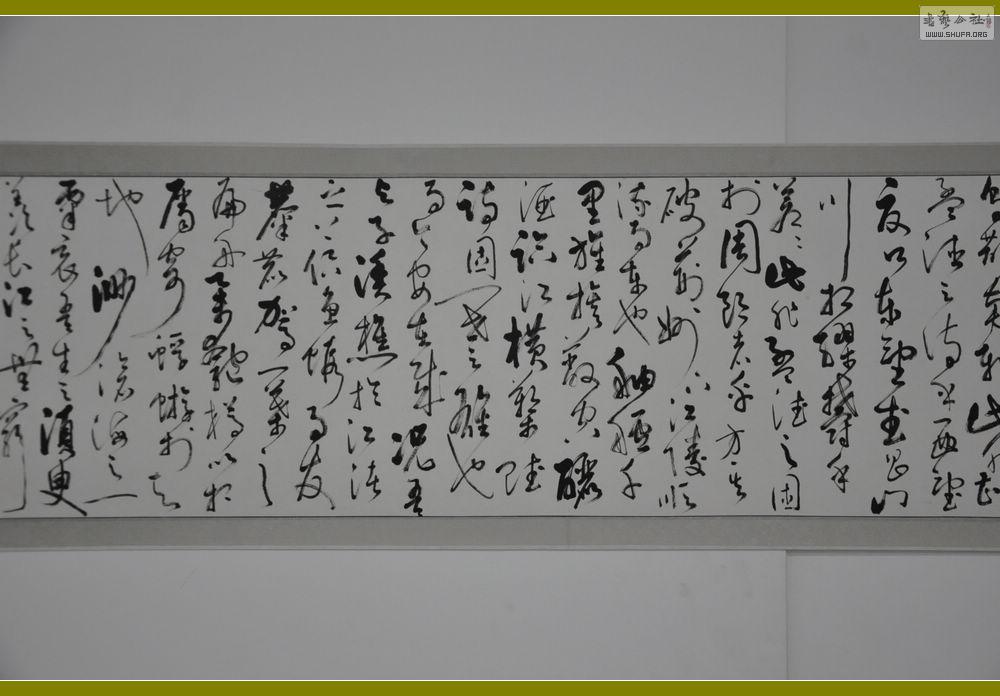 書藝公社
WWW.SHUFA.ORG
烏鵲南飛此非曹
孟德之詩乎西望
夏口東望武昌山
川相繆鬱乎
蒼〻此非孟德之困
於周郎者乎方其
破荊州下江陵順
流而東也舳艫千
里旌旗蔽空釃
酒臨江橫槊賦
詩固一世之雄也
而今安在哉況吾
與子漁樵於江渚
之上侶魚蝦而友
麋鹿駕一葉之
扁舟舉匏樽以相
屬寄蜉蝣於天
地渺滄海之一
粟哀吾生之須臾
羨長江之無窮